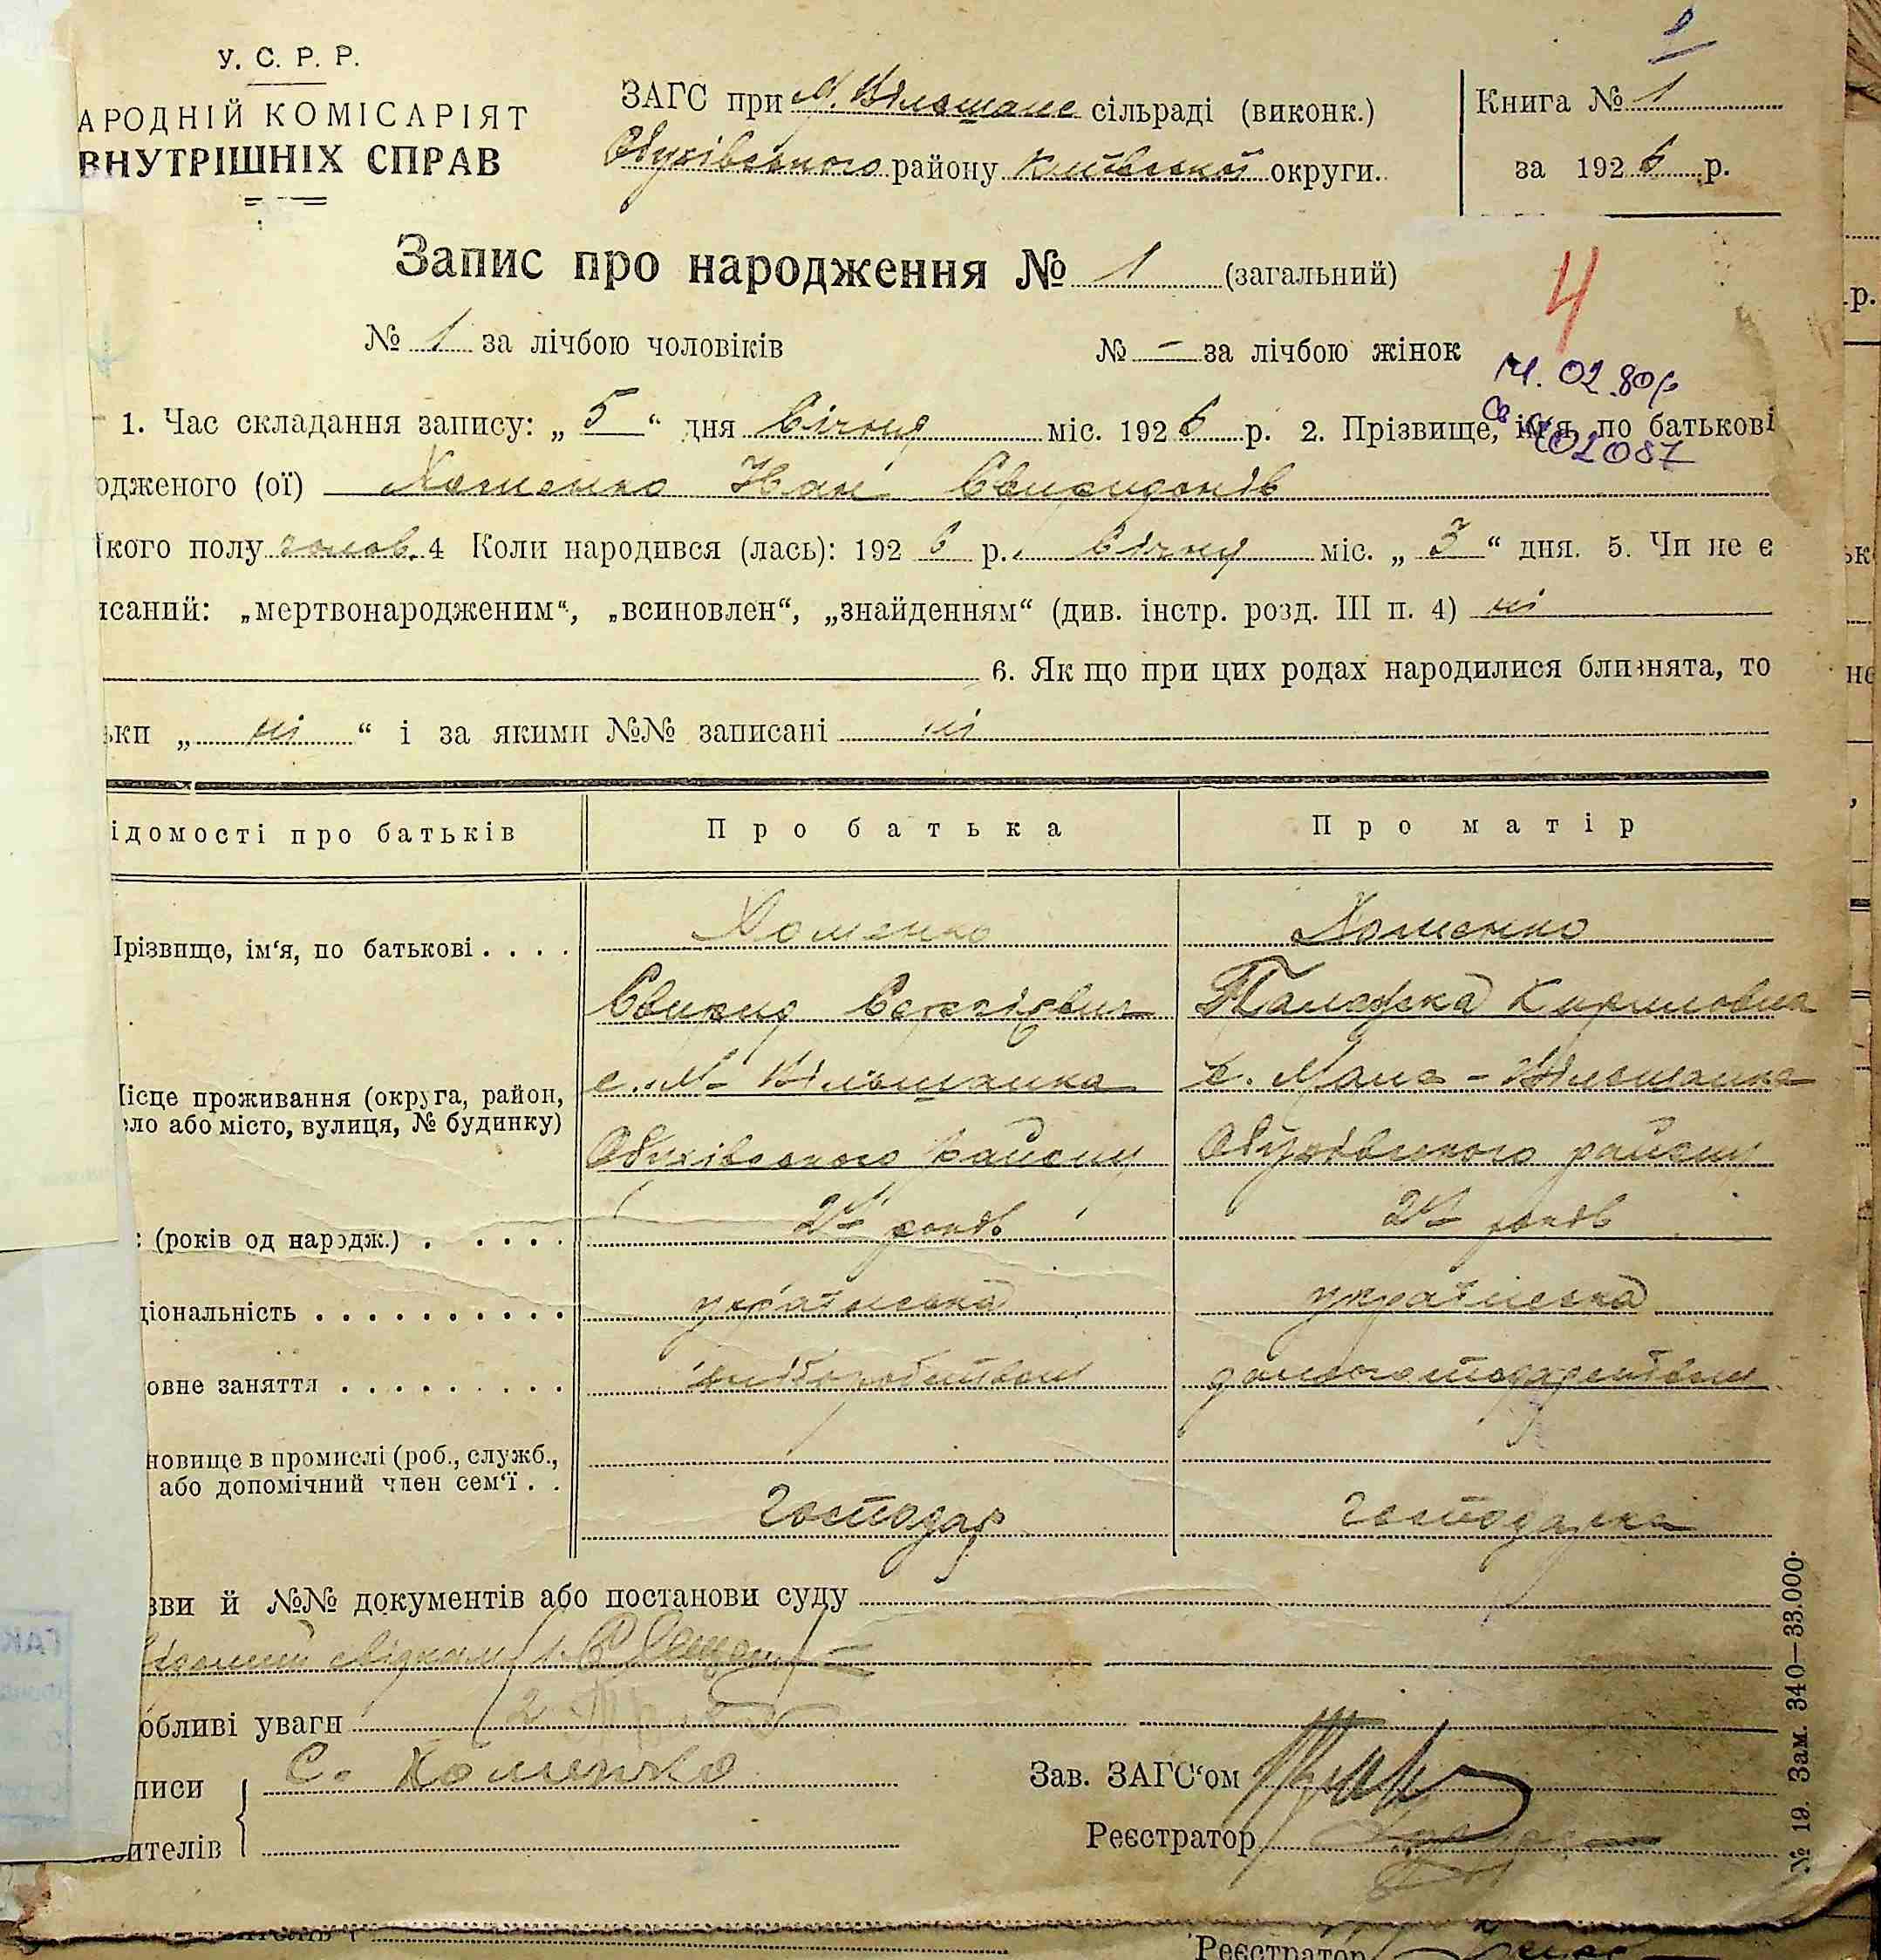 У. С. Р. Р.
АРОДНІЙ КОМІСАРІЯТ
ВНУТРІШНІХ СПРАВ
ЗАГС при М. Вільшане сільраді (виконк.)
Обухівського району Київської округи.
Книга № 1
за 1926 р.
Запис про народження № 1 (загальний)
4
№ 1 за лічбою чоловіків № — за лічбою жінок
14.02.80р
1. Час складання запису: „5“ дня Січня міс. 1926 р. 2. Прізвище, ім'я, по батькові
02087
одженого (ої) Хоменко Іван Свиридонів
кого полу чолов. 4 Коли народився (лась): 1926 р. Січня міс. „3“ дня. 5. Чи не є
исаний: „мертвонародженим“, „всиновлен“, „знайденням“ (див. інстр. розд. III п. 4) ні
6. Як що при цих родах народилися близнята, то
ьки „ ні “ і за якими №№ записані ні
ідомості про батьків Про батька Про матір
Прізвище, ім'я, по батькові . . . . Хоменко Хоменко
Свирид Сергієвич Палажка Кириловна
Місце проживання (округа, район, с. М- Вільшанка с. Мала - Вільшанка
ело або місто, вулиця, № будинку)
Обухівського району Обухівського району
: (років од народж.) . . . . . 24 років 24 років
ціональність . . . . . . . . . . українська українська
овне заняття . . . . . . . . . хліборобством домогосподарством
новище в промислі (роб., служб.,
або допомічний член сем'ї . .
Господар Господарка
зви й №№ документів або постанови суду
обливі уваги
писи С. Хоменко
Зав. ЗАГС'ом
Реєстратор
ителів
№ 19. Зам. 340—33.000.
Реєстратор